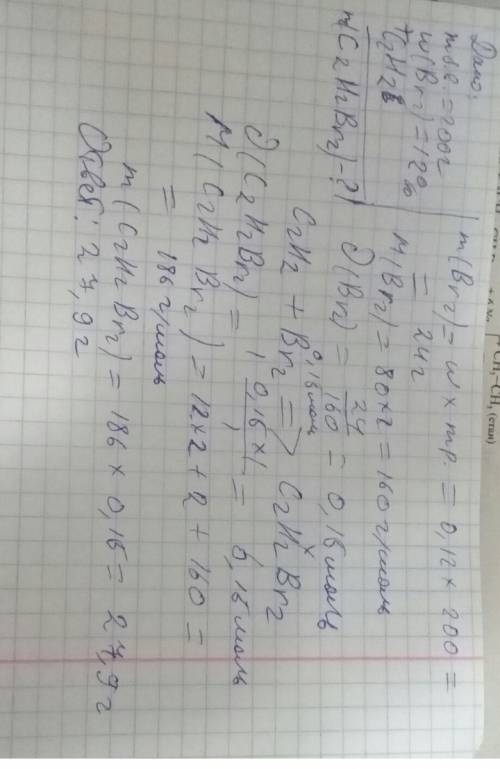 Дано:
m р.в. = 200г
w(Br2) = 12%
+C2H2
m(C2H2Br2) - ?
m(Br2) = w × mр. = 0,12 × 200 =
= 24г
M(Br2) = 80×2 = 160 г/моль
ν(Br2) = 24/160 = 0,15 моль
0,15 моль x
C2H2 + Br2 => C2H2Br2
1 1
ν(C2H2Br2) = 0,15×1/1 = 0,15 моль
M(C2H2Br2) = 12×2 + 2 + 160 =
= 186 г/моль
m(C2H2Br2) = 186 × 0,15 = 27,9 г
Ответ: 27,9 г
CH2 CH3 (стан)